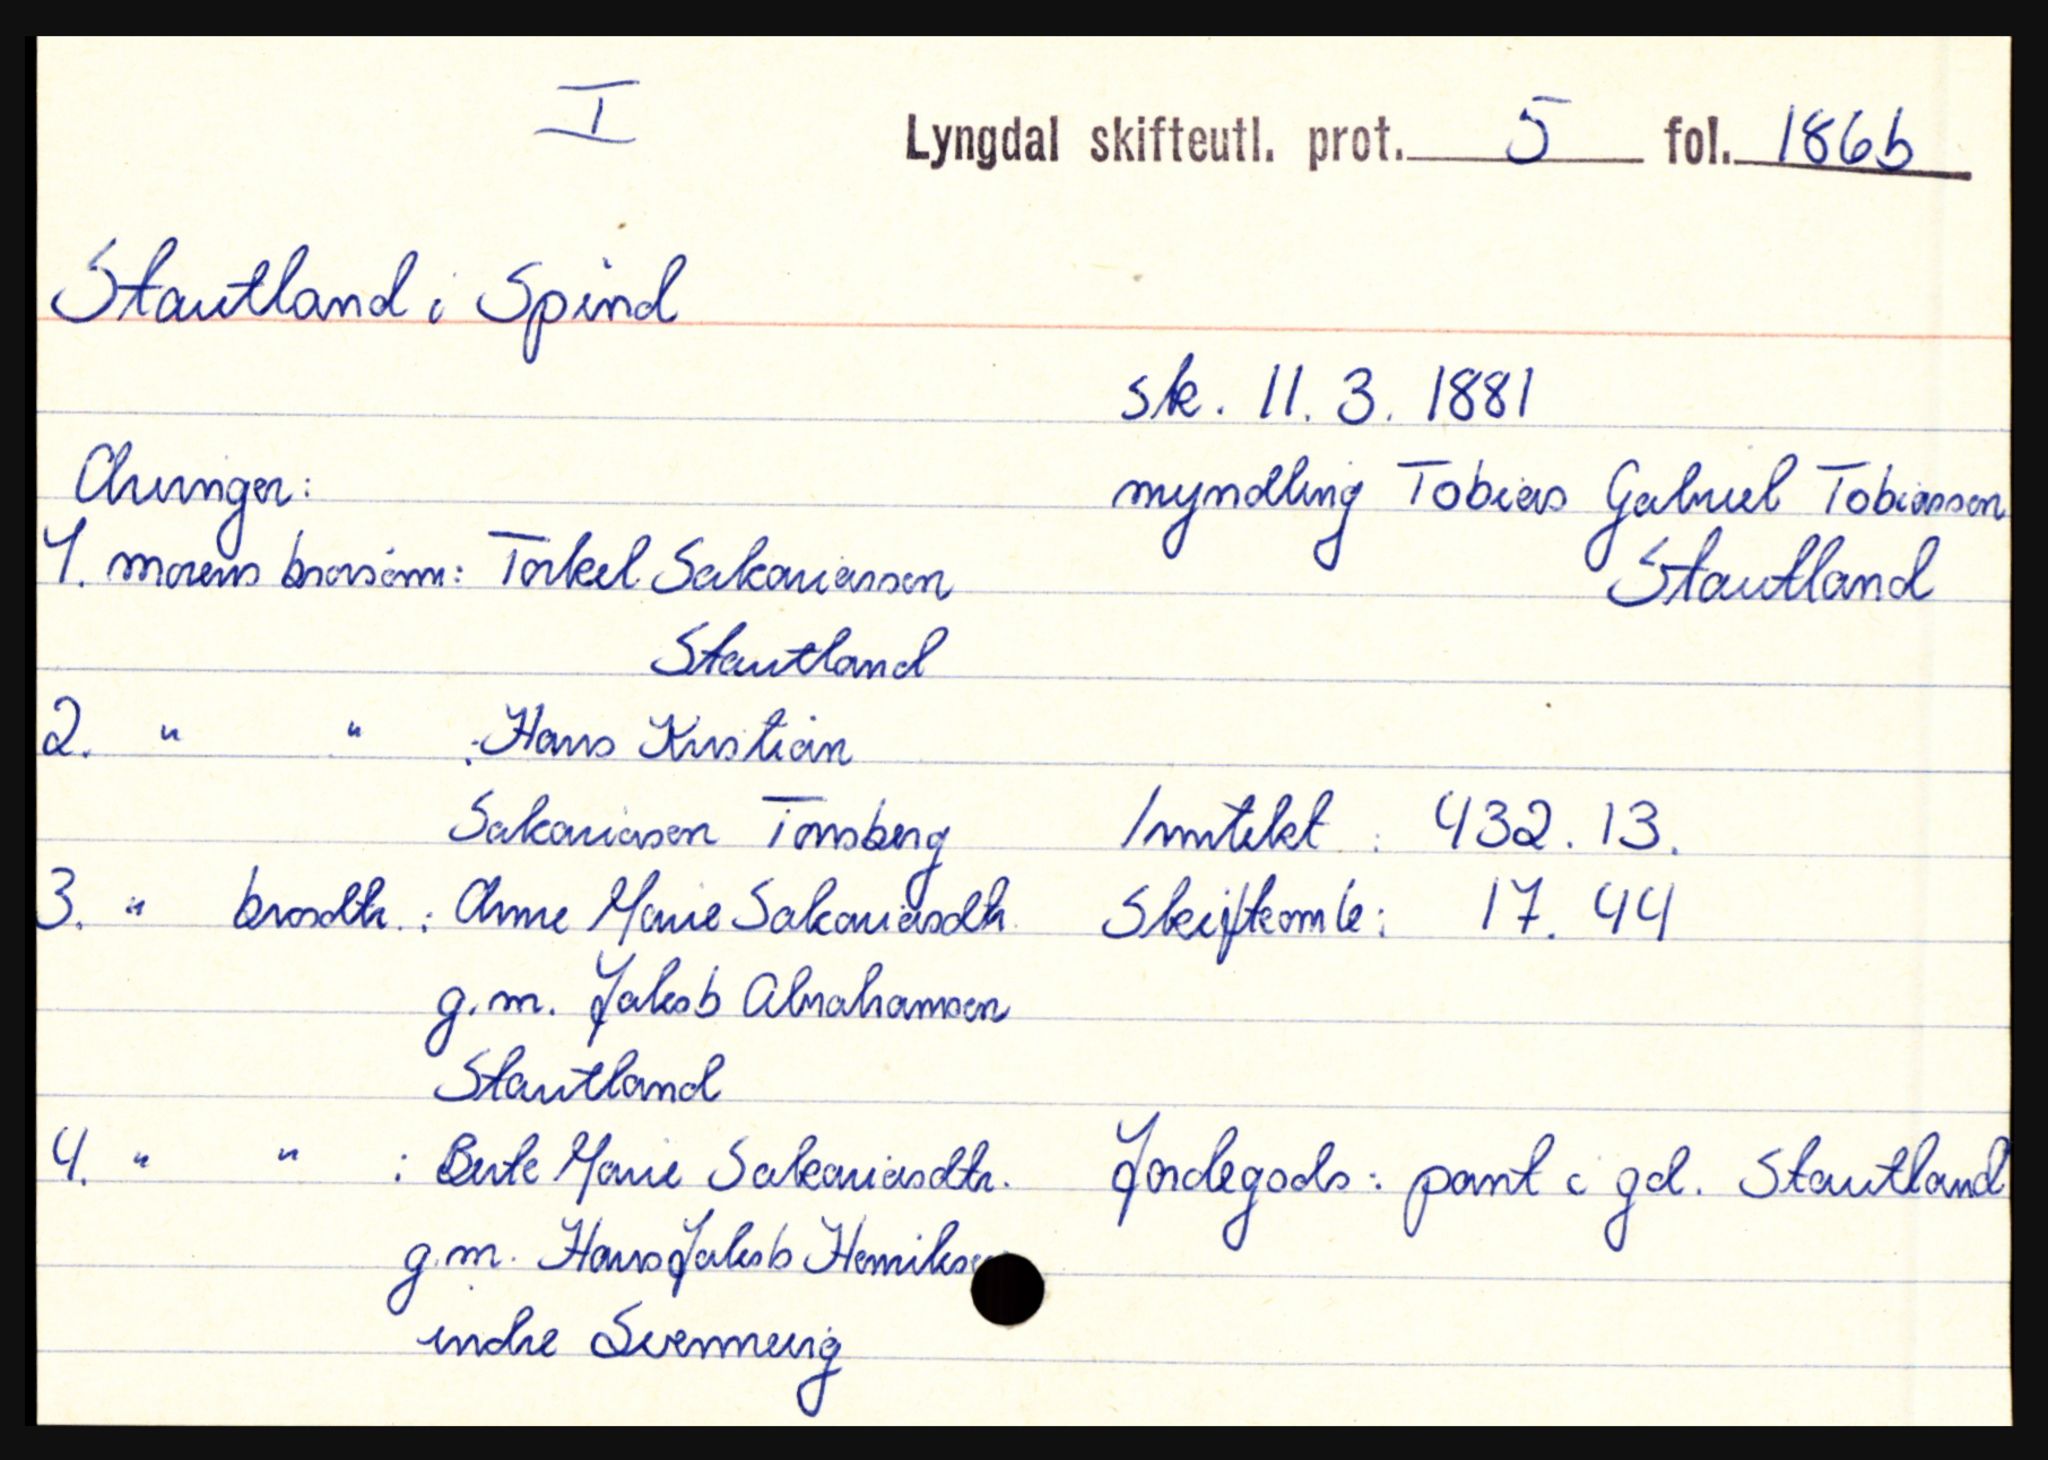 I
Lyngdal skifteutl. prot. 5 fol. 186b
Stautland i Spind
sk. 11. 3. 1881
Arvinger:
myndling Tobias Gabriel Tobiassen
Stautland
1. morens brorsønn: Torkel Sakariassen
Stautland
2. " " : Hans Kristian
Sakariasen Tønsberg
Inntekt : 432. 13.
3. " brosdtr. : Anne Marie Sakariasdtr.
Skifteomk: 17. 44
g.m. Jakob Abrahamsen
Stautland
4. " " : Berte Marie Sakariasdtr.
Jordegods : pant i gd. Stautland
g.m. Hans Jakob Henrikse
indre Svennevig